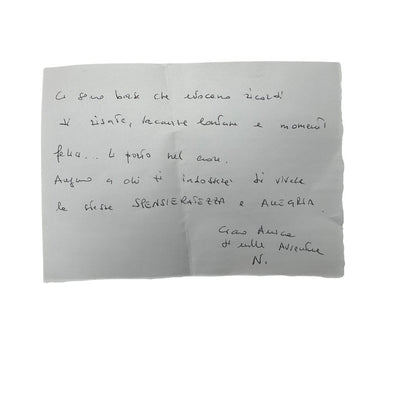 Ci sono borse che evocano ricordi
di risate, vacanze lontane e momenti
felici... ti porto nel cuore.
Auguro a chi ti indosserà di vivere
la stessa SPENSIERATEZZA e ALLEGRIA.
Ciao Amica
di mille Avventure
N.